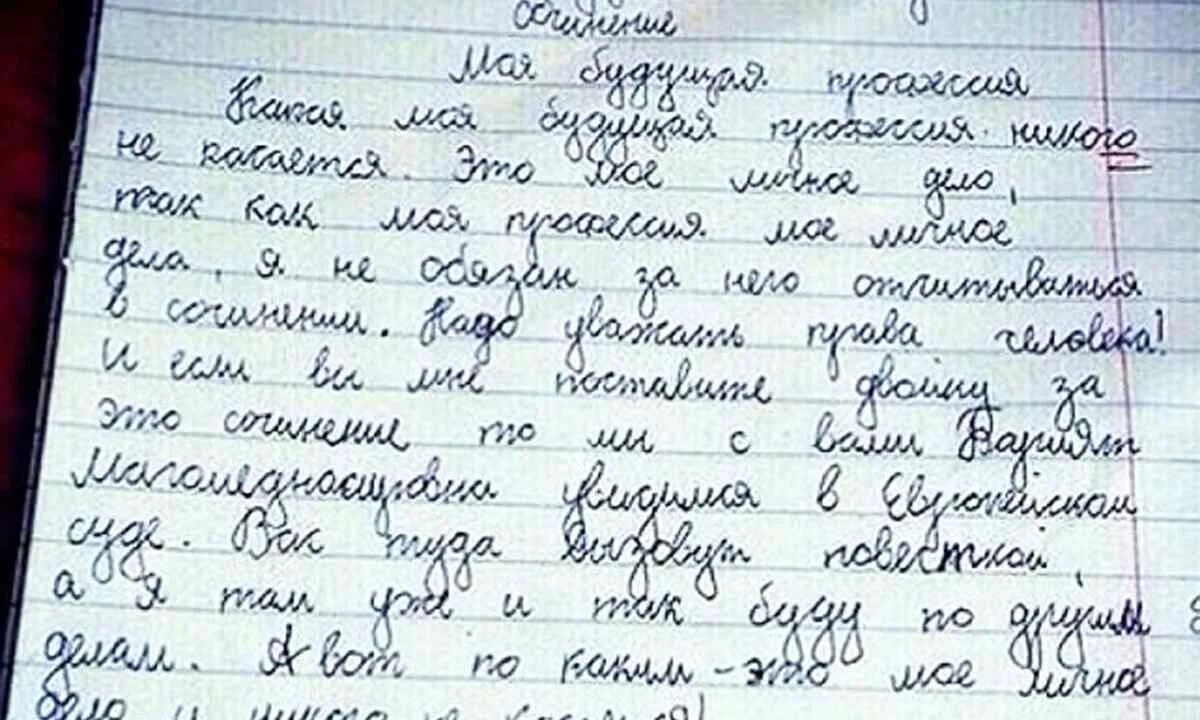 Сочинение
Моя будущая профессия
Какая моя будущая профессия никого
не касается. Это мое личное дело,
так как моя профессия мое личное
дела, я не обязан за него отчитываться
в сочинении. Надо уважать права человека!
И если вы мне поставите двойку за
это сочинение то мы с вами
Магомеднасировна увидимся в Европейском
суде. Вас туда вызовут повесткой,
а я там уже и так буду по другим
делам. А вот по каким - это мое личное
дело и никого не касается!